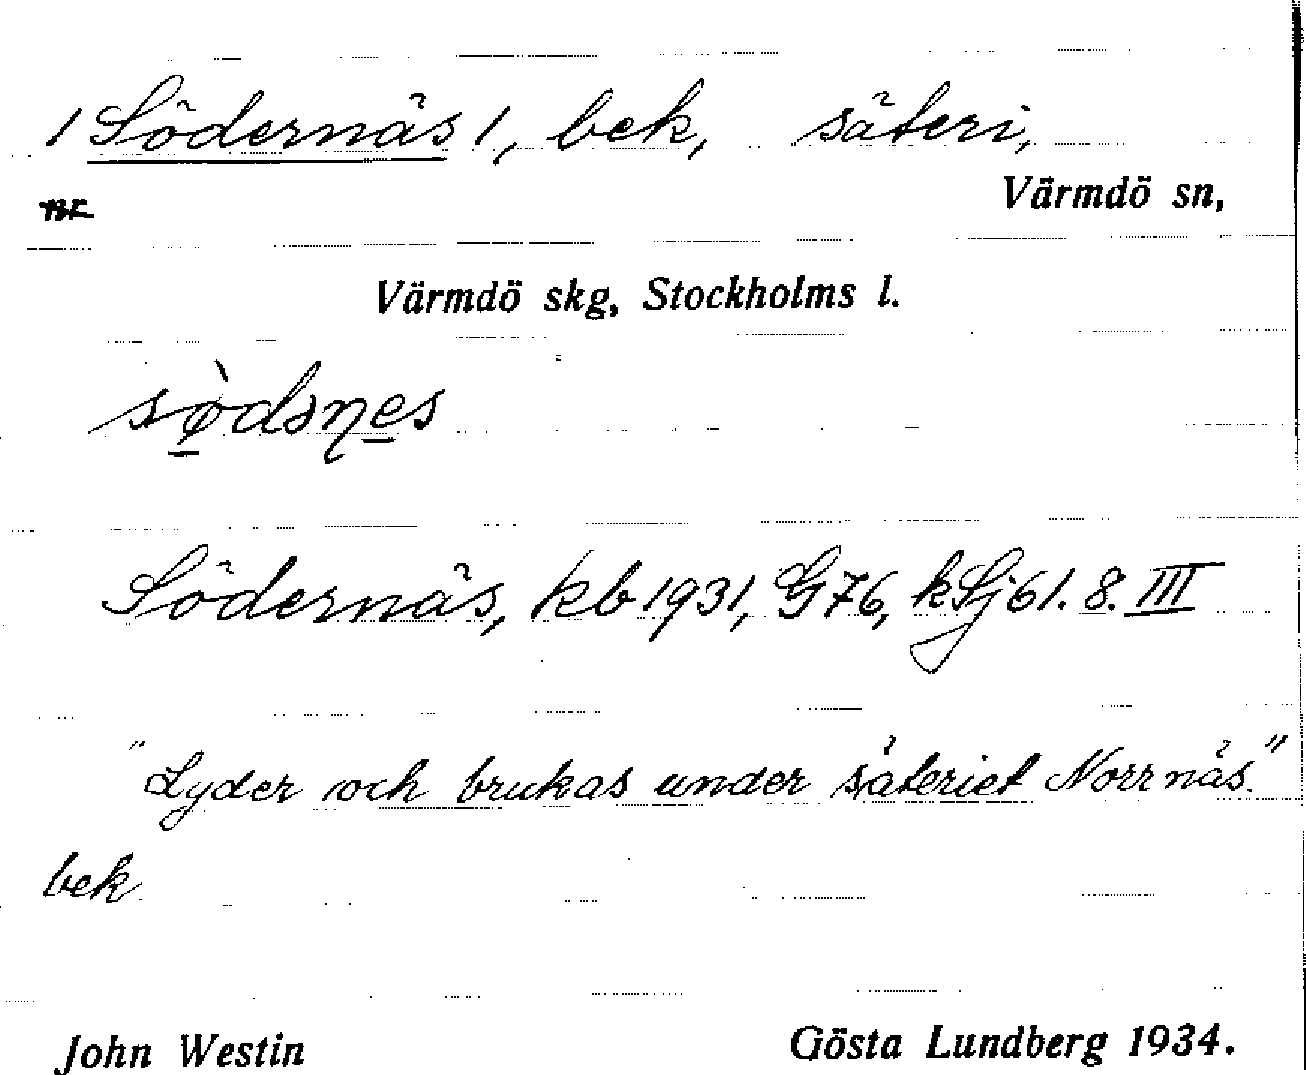 /Södernäs/, bek, säteri,
Värmdö sn,
Värmdö skg, Stockholms l.
sø̀dəṇes
Södernäs, kb 1931, G76, kSj61. 8. III
"Lyder och brukas under säteriet Norrnäs."
bek
John Westin Gösta Lundberg 1934.